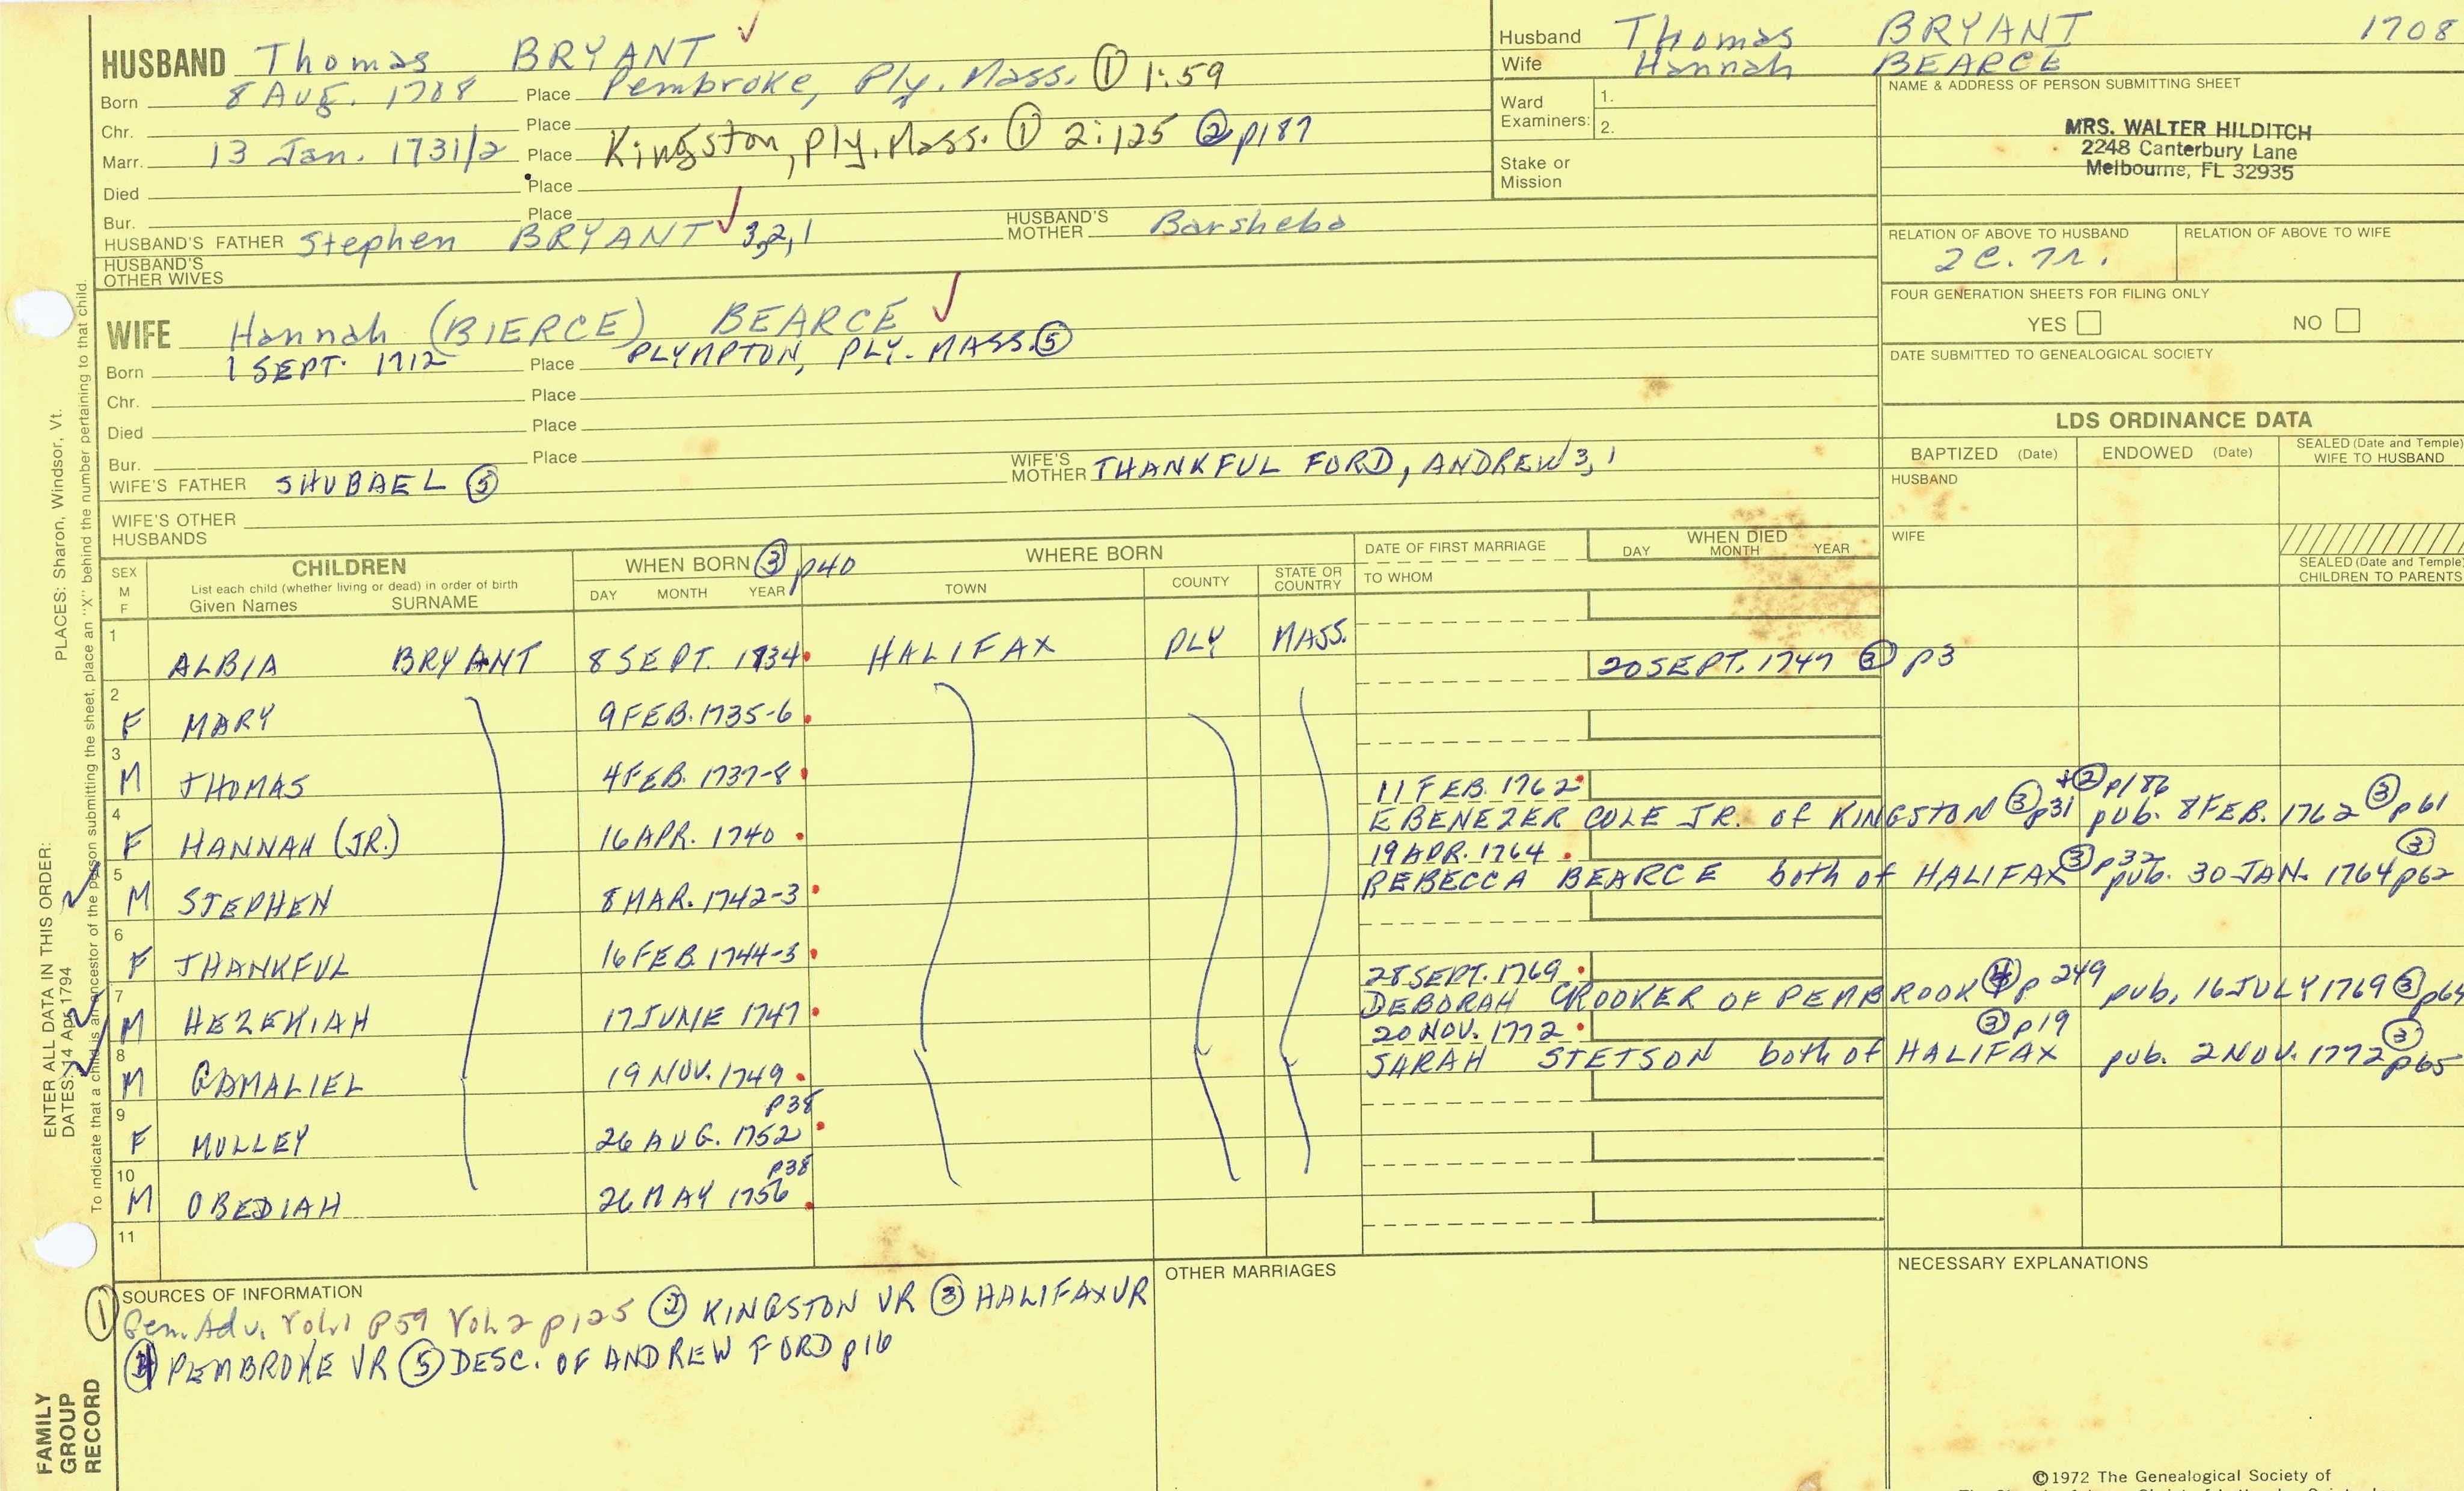 HUSBAND Thomas BRYANT ✓
Born 8 AUG. 1708 Place Pembroke, Ply. Mass. ① 1:59
Chr. Place
Marr. 13 Jan. 1731/2 Place Kingston, Ply. Mass. ① 2:125 ② p187
Died Place
Bur. Place
HUSBAND'S FATHER Stephen BRYANT ✓ 3,2,1 HUSBAND'S MOTHER Barsheba
HUSBAND'S OTHER WIVES
WIFE Hannah (BIERCE) BEARCE ✓
Born 1 SEPT. 1712 Place PLYMPTON, PLY. MASS. ⑤
Chr. Place
Died Place
Bur. Place
WIFE'S FATHER SHUBAEL ⑤ WIFE'S MOTHER THANKFUL FORD, ANDREW 3, 1
WIFE'S OTHER HUSBANDS
Husband Thomas BRYANT 1708
Wife Hannah BEARCE
Ward Examiners: 1.
2.
Stake or Mission
NAME & ADDRESS OF PERSON SUBMITTING SHEET
MRS. WALTER HILDITCH
2248 Canterbury Lane
Melbourne, FL 32935
RELATION OF ABOVE TO HUSBAND RELATION OF ABOVE TO WIFE
2C. 7r.
FOUR GENERATION SHEETS FOR FILING ONLY
YES NO
DATE SUBMITTED TO GENEALOGICAL SOCIETY
LDS ORDINANCE DATA
BAPTIZED (Date) ENDOWED (Date) SEALED (Date and Temple) WIFE TO HUSBAND
HUSBAND
WIFE
SEALED (Date and Temple) CHILDREN TO PARENTS
SEX M F
CHILDREN
List each child (whether living or dead) in order of birth
Given Names SURNAME
WHEN BORN ③ p40
DAY MONTH YEAR
WHERE BORN
TOWN COUNTY STATE OR COUNTRY
DATE OF FIRST MARRIAGE
TO WHOM
WHEN DIED
DAY MONTH YEAR
1 ALBIA BRYANT 8 SEPT. 1734 HALIFAX PLY MASS. 20 SEPT. 1747 ③ p3
2 F MARY 9 FEB. 1735-6
3 M THOMAS 4 FEB. 1737-8
4 F HANNAH (JR.) 16 APR. 1740 11 FEB. 1762 EBENEZER COLE JR. of KINGSTON ③ p31 + ② p186 pub. 8 FEB. 1762 ③ p61
5 M STEPHEN 8 MAR. 1742-3 19 APR. 1764 REBECCA BEARCE both of HALIFAX ③ p32 pub. 30 JAN. 1764 ③ p62
6 F THANKFUL 16 FEB. 1744-5
7 M HEZEKIAH 17 JUNE 1747 28 SEPT. 1769 DEBORAH CROOKER OF PEMBROOK ④ p 249 pub. 16 JULY 1769 ③ p64
8 M GAMALIEL 19 NOV. 1749 20 NOV. 1772 SARAH STETSON both of HALIFAX ③ p19 pub. 2 NOV. 1772 ③ p65
9 F MULLEY p38 26 AUG. 1752
10 M OBEDIAH p38 26 MAY 1756
11
SOURCES OF INFORMATION
① Gen. Adv. Vol. 1 p59 Vol. 2 p125 ② KINGSTON VR ③ HALIFAX VR
④ PEMBROKE VR ⑤ DESC. OF ANDREW FORD p16
OTHER MARRIAGES
NECESSARY EXPLANATIONS
©1972 The Genealogical Society of
FAMILY GROUP RECORD
ENTER ALL DATA IN THIS ORDER:
DATES: 14 Apr 1794
PLACES: Sharon, Windsor, Vt.
To indicate that a child is an ancestor of the person submitting the sheet, place an "X" behind the number pertaining to that child.